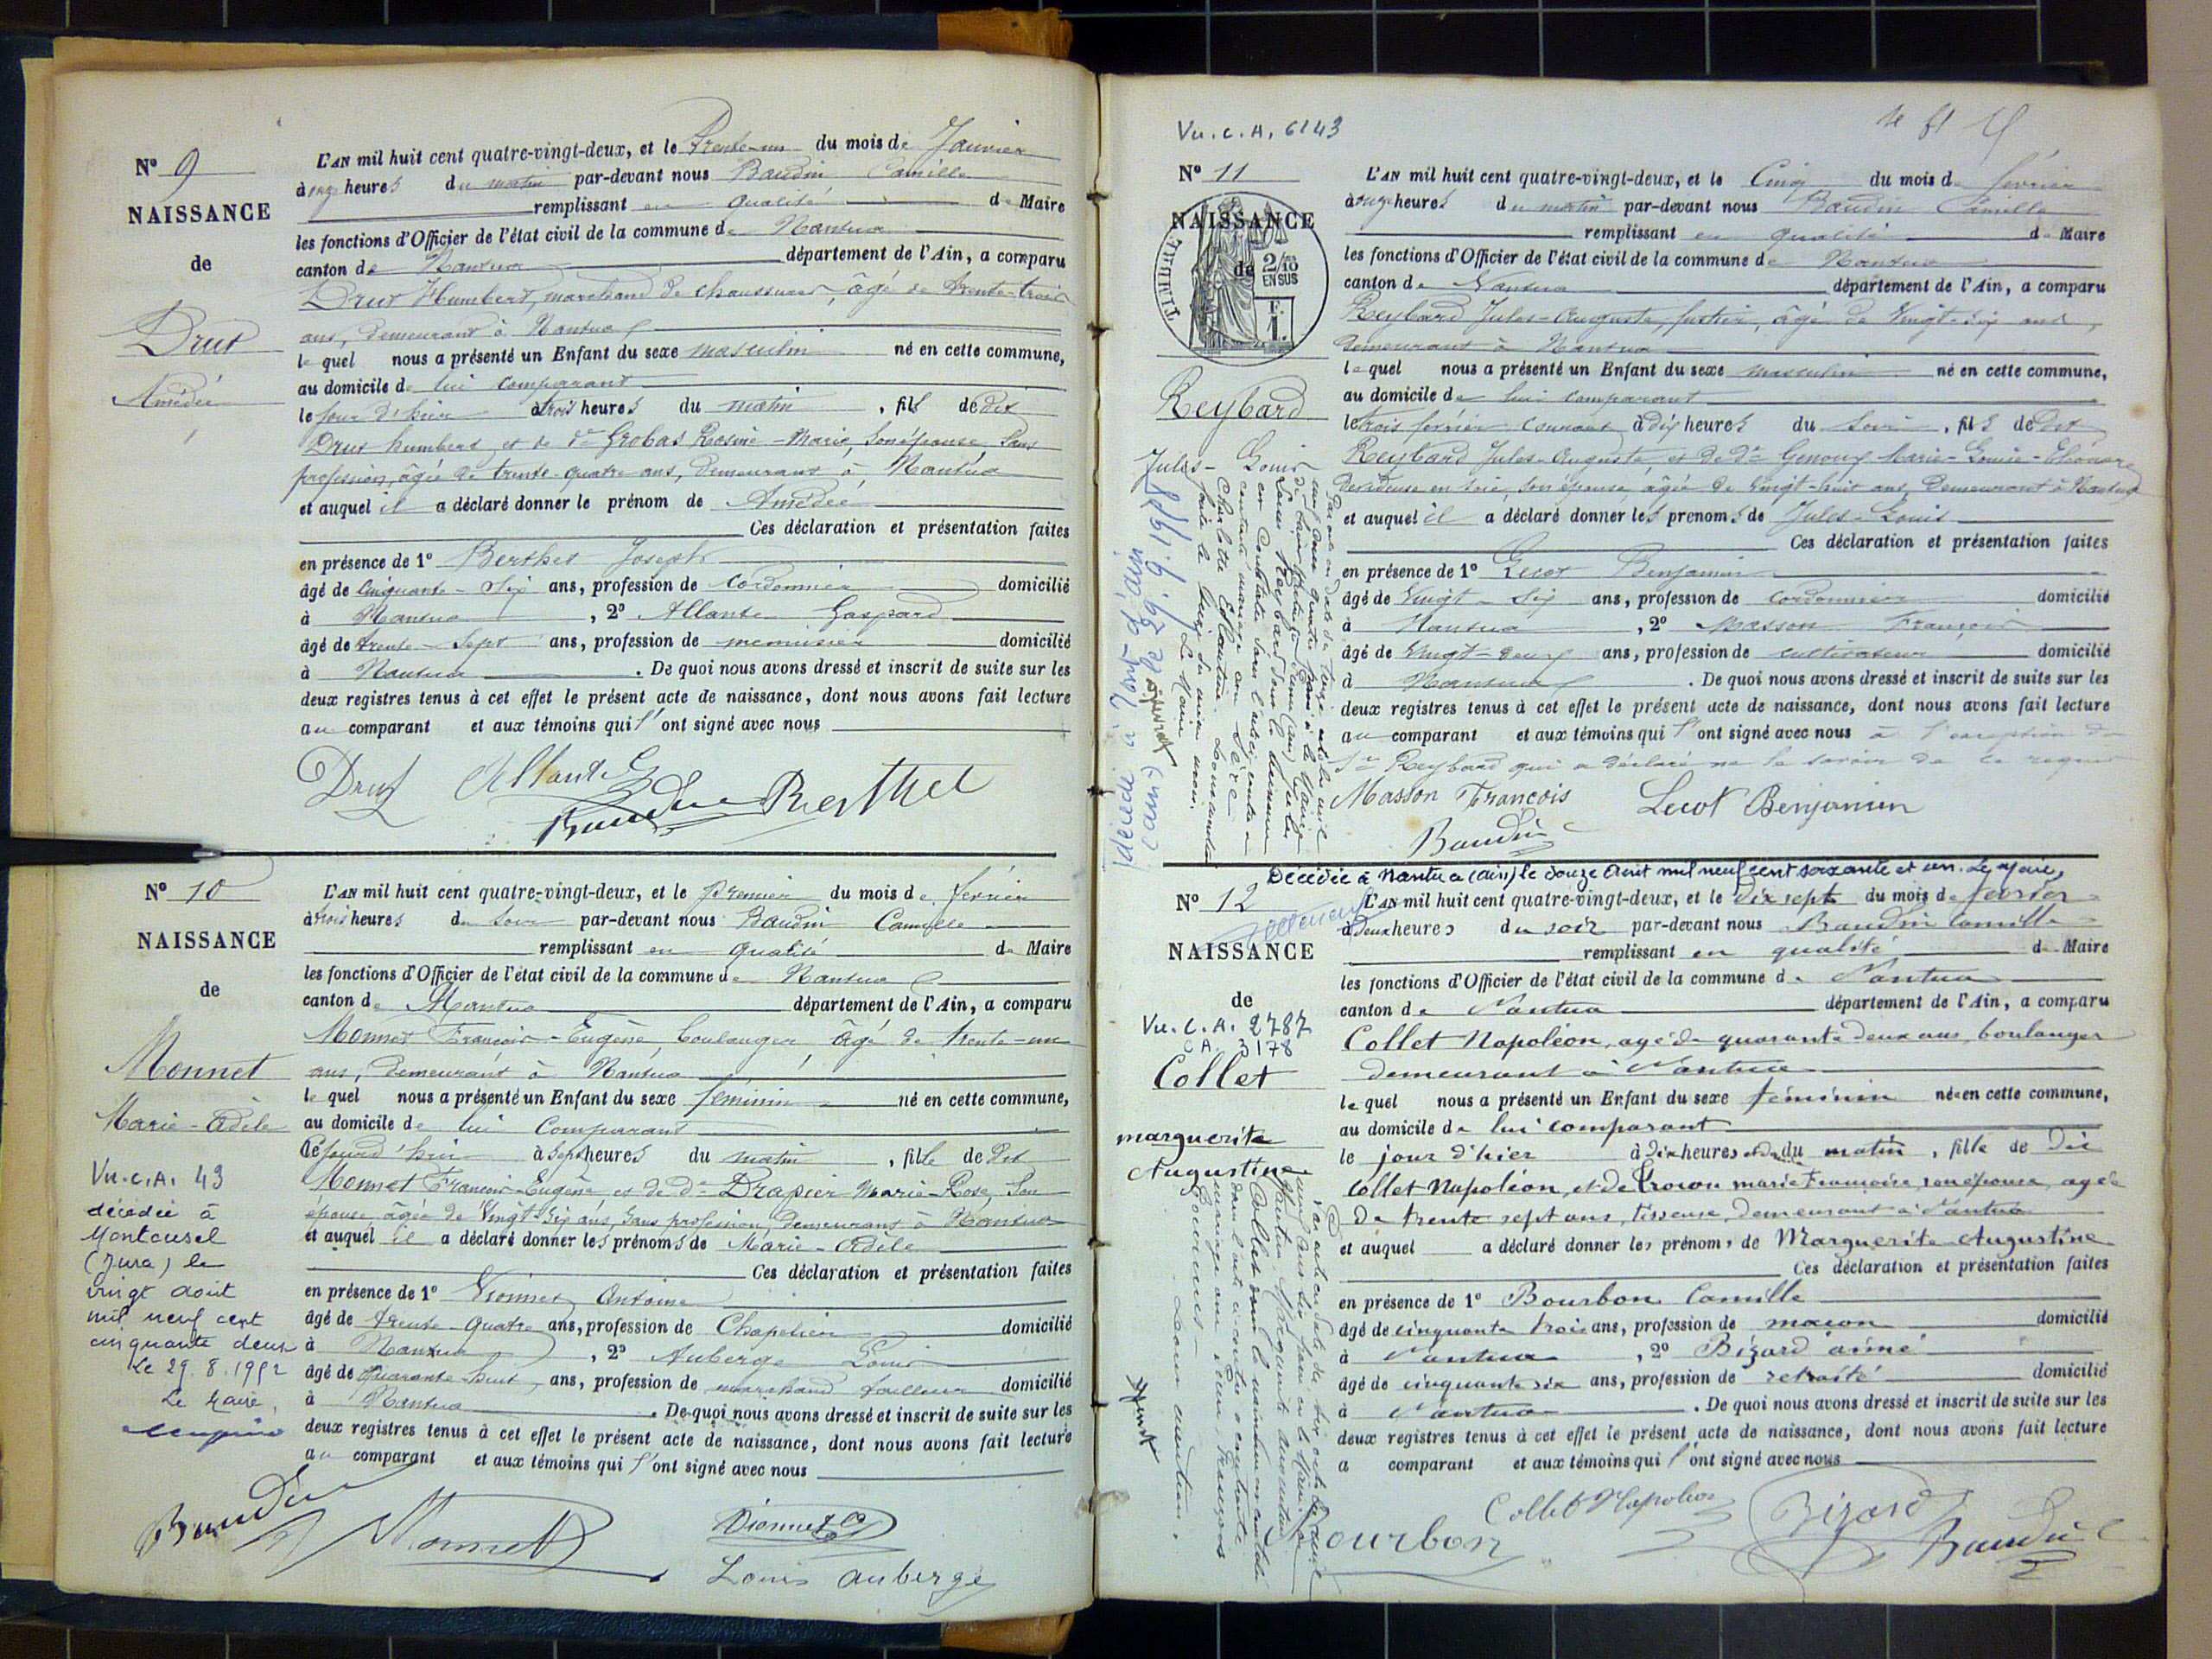 N° 9
NAISSANCE
de
Drut
Amédée
L'AN mil huit cent quatre-vingt-deux, et le Trente-un du mois de Janvier
à onze heures du matin par-devant nous Baudin Camille
remplissant en qualité de Maire
les fonctions d'Officier de l'état civil de la commune de Nantua
canton de Nantua département de l'Ain, a comparu
Drut Humbert, marchand de chaussures, âgé de trente-trois
ans, demeurant à Nantua
lequel nous a présenté un Enfant du sexe masculin né en cette commune,
au domicile de lui comparant
le jour d'hier à trois heures du matin, fils de dit
Drut humbert et de de Grobas Rosine-Marie, son épouse, sans
profession, âgée de trente-quatre ans, demeurant à Nantua
et auquel il a déclaré donner le prénom de Amédée
Ces déclaration et présentation faites
en présence de 1° Berthet Joseph
âgé de Cinquante-Six ans, profession de Cordonnier domicilié
à Nantua, 2° Allante Gaspard
âgé de trente-Sept ans, profession de menuisier domicilié
à Nantua. De quoi nous avons dressé et inscrit de suite sur les
deux registres tenus à cet effet le présent acte de naissance, dont nous avons fait lecture
au comparant et aux témoins qui l'ont signé avec nous
Drut Allante G
Baudin Berthet
N° 10
NAISSANCE
de
Monnet
Marie-Adèle
Vu.C.A. 43
décédée à
Montcusel
(Jura) le
vingt août
mil neuf cent
cinquante deux
Le 29.8.1952
Le Maire,
L'AN mil huit cent quatre-vingt-deux, et le premier du mois de février
à trois heures du soir par-devant nous Baudin Camille
remplissant en qualité de Maire
les fonctions d'Officier de l'état civil de la commune de Nantua
canton de Nantua département de l'Ain, a comparu
Monnet François-Eugène, boulanger âgé de trente-un
ans, demeurant à Nantua
lequel nous a présenté un Enfant du sexe féminin né en cette commune,
au domicile de lui Comparant
à sept heures du matin, fille de dit
Monnet François-Eugène et de de Drapier Marie-Rose, son
épouse âgée de Vingt-Six ans, sans profession, demeurant à Nantua
et auquel il a déclaré donner les prénoms de Marie-Adèle
Ces déclaration et présentation faites
en présence de 1° Vionnet Antoine
âgé de trente-quatre ans, profession de Chapelier domicilié
à Nantua, 2° Auberge Louis
âgé de Quarante-huit ans, profession de marchand tailleur domicilié
à Nantua. De quoi nous avons dressé et inscrit de suite sur les
deux registres tenus à cet effet le présent acte de naissance, dont nous avons fait lecture
au comparant et aux témoins qui l'ont signé avec nous
Baudin Monnet Vionnet
Louis Auberge
Vu.C.A. 6143
N° 11
NAISSANCE
de
TIMBRE
2/10
EN SUS
F.
1.
Reybard
Jules-Louis
décédé à Pont d'Ain
(Ain) le 29.9.1958
L'AN mil huit cent quatre-vingt-deux, et le Cinq du mois de février
à onze heures du matin par-devant nous Baudin Camille
remplissant en qualité de Maire
les fonctions d'Officier de l'état civil de la commune de Nantua
canton de Nantua département de l'Ain, a comparu
Reybard Jules-Auguste, âgé de Vingt-Six ans,
demeurant à Nantua
lequel nous a présenté un Enfant du sexe masculin né en cette commune,
au domicile de lui comparant
le trois février courant à dix heures du soir, fils de dit
Reybard Jules-Auguste et de de Genoux Marie-Louise-Eléonore
dévideuse en soie, son épouse, âgée de Vingt-huit ans, demeurant à Nantua
et auquel il a déclaré donner les prénoms de Jules-Louis
Ces déclaration et présentation faites
en présence de 1° Lecot Benjamin
âgé de Vingt-Six ans, profession de cordonnier domicilié
à Nantua, 2° Masson François
âgé de Vingt-deux ans, profession de cultivateur domicilié
à Nantua. De quoi nous avons dressé et inscrit de suite sur les
deux registres tenus à cet effet le présent acte de naissance, dont nous avons fait lecture
au comparant et aux témoins qui l'ont signé avec nous à l'exception du
Sr Reybard qui a déclaré ne le savoir de ce requis
Masson François Lecot Benjamin
Baudin
Décédée à Nantua (Ain) le douze Août mil neuf cent soixante et un. Le Maire,
N° 12
NAISSANCE
de
Vu.C.A. 2787
C.A. 3178
Collet
marguerite
Augustine
L'AN mil huit cent quatre-vingt-deux, et le dix sept du mois de février
à deux heures du soir par-devant nous Baudin Camille
remplissant en qualité de Maire
les fonctions d'Officier de l'état civil de la commune de Nantua
canton de Nantua département de l'Ain, a comparu
Collet Napoléon, agé de quarante deux ans, boulanger
demeurant à Nantua
lequel nous a présenté un Enfant du sexe féminin née en cette commune,
au domicile de lui comparant
le jour d'hier à dix heures du matin, fille de dit
Collet Napoléon, et de marie Françoise, son épouse, agée
de trente sept ans, tisseuse, demeurant à Nantua
et auquel a déclaré donner les prénoms de Marguerite Augustine
Ces déclaration et présentation faites
en présence de 1° Bourbon Camille
âgé de cinquante trois ans, profession de macon domicilié
à Nantua, 2° Bizard aimé
âgé de cinquante six ans, profession de retraité domicilié
à Nantua. De quoi nous avons dressé et inscrit de suite sur les
deux registres tenus à cet effet le présent acte de naissance, dont nous avons fait lecture
a comparant et aux témoins qui l'ont signé avec nous
Collet Napoléon Bizard
Bourbon Baudin